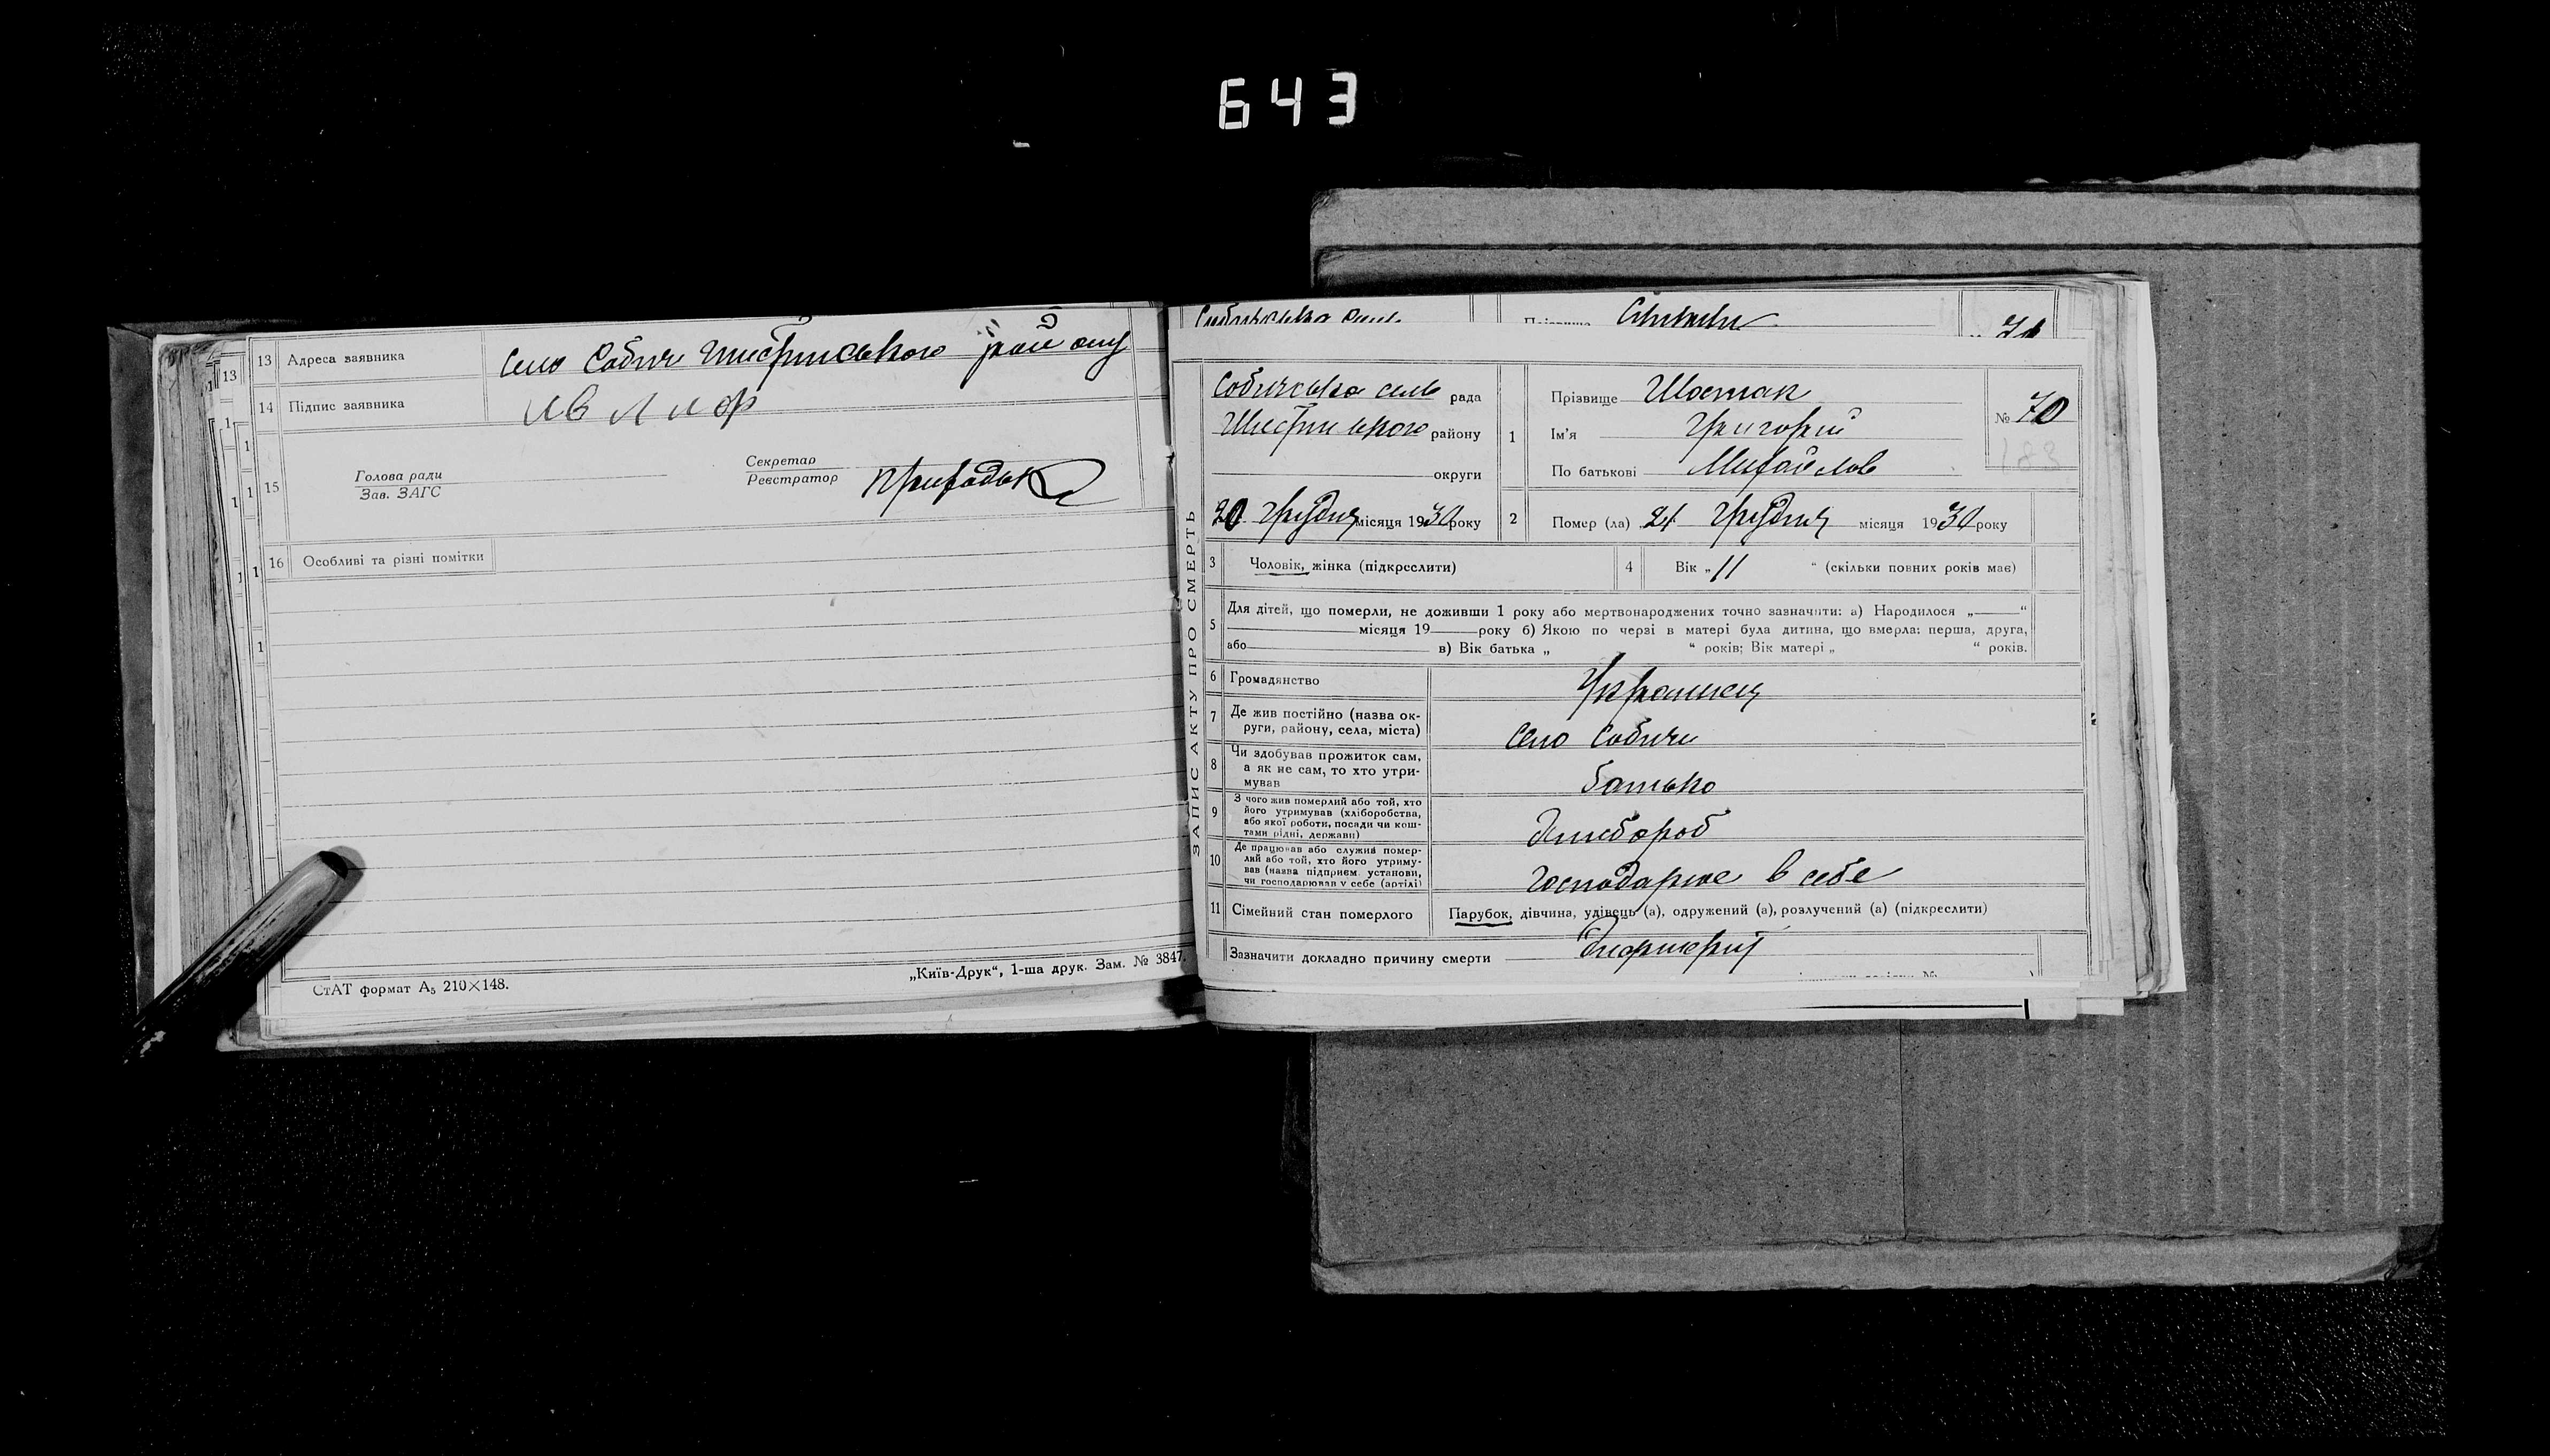 643
13 Адреса заявника село Собич Шостринського району
14 Підпис заявника
15 Голова ради
Зав. ЗАГС
Секретар
Реєстратор
16 Особливі та різні помітки
СтАТ формат А₅ 210×148.
„Київ-Друк“, 1-ша друк. Зам. № 3847.
71
ЗАПИС АКТУ ПРО СМЕРТЬ
Собичська сель рада
району
округи
20 грудня місяця 1930 року
1 Прізвище Шостак
Ім’я Григорий
По батькові Михайлов
№ 70
2 Помер (ла) грудня місяця 1930 року
3 Чоловік, жінка (підкреслити)
4 Вік „ 11 “ (скільки повних років має)
5 Для дітей, що померли, не доживши 1 року або мертвонароджених точно зазначити: а) Народилося „ — “
місяця 19 — року б) Якою по черзі в матері була дитина, що вмерла: перша, друга,
або — в) Вік батька „ “ років; Вік матері „ “ років.
6 Громадянство Украинец
7 Де жив постійно (назва ок-
руги, району, села, міста) село Собичи
8 Чи здобував прожиток сам,
а як не сам, то хто утри-
мував батько
9 З чого жив померлий або той, хто
його утримував (хліборобства,
або якої роботи, посади чи кош-
тами рідні, держави) Хлибороб
10 Де працював або служив помер-
лий або той, хто його утриму-
вав (назва підприєм. установи,
чи господарював у себе (артілі) господарює в себе
11 Сімейний стан померлого Парубок, дівчина, удівець (а), одружений (а), розлучений (а) (підкреслити)
Зазначити докладно причину смерти Дифтерит